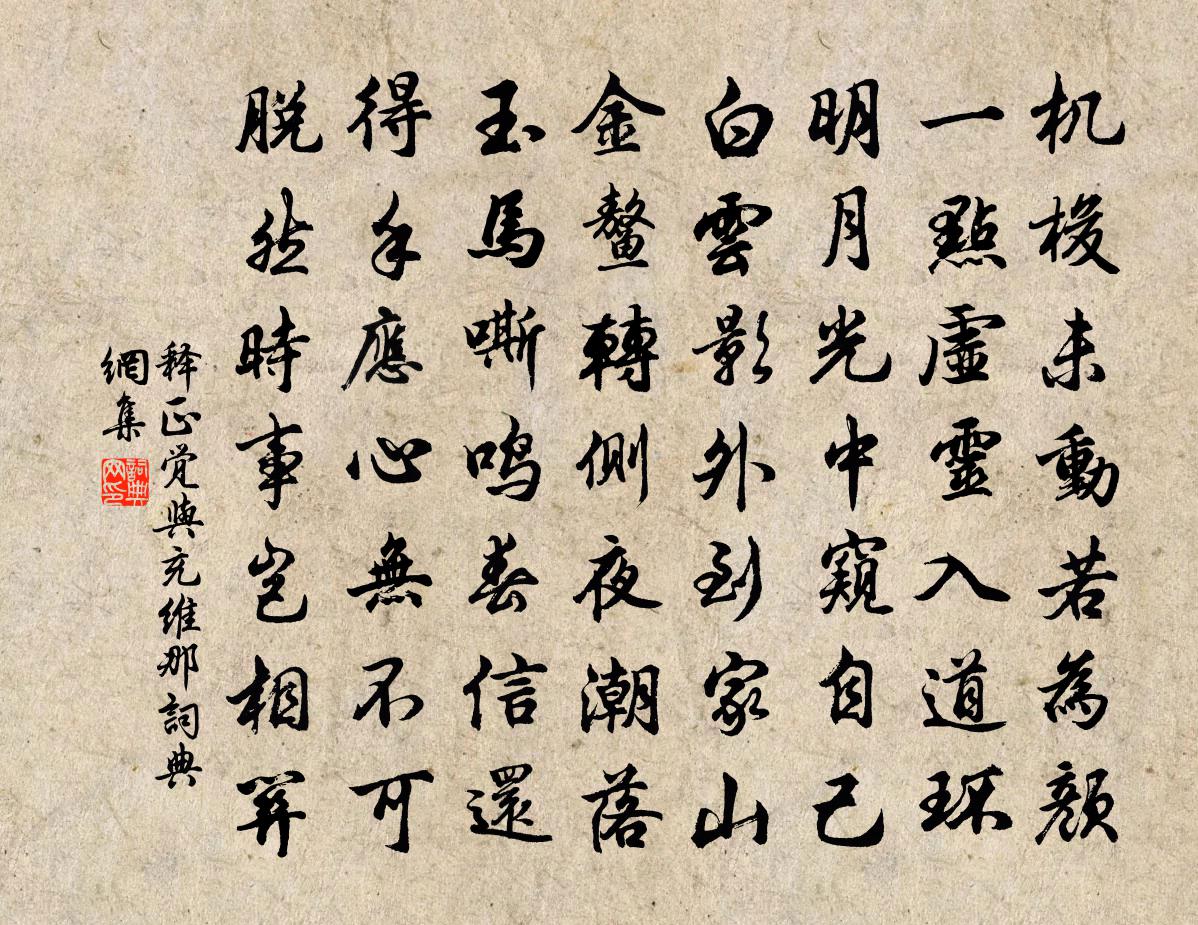 机梭未動若為顏
一點虛靈入道环
明月光中窺自己
白雲影外到家山
金鰲轉側夜潮落
玉馬嘶鳴春信還
得手應心無不可
脫然時事豈相關
释正觉與充維那詞典
網集
詞典
网印